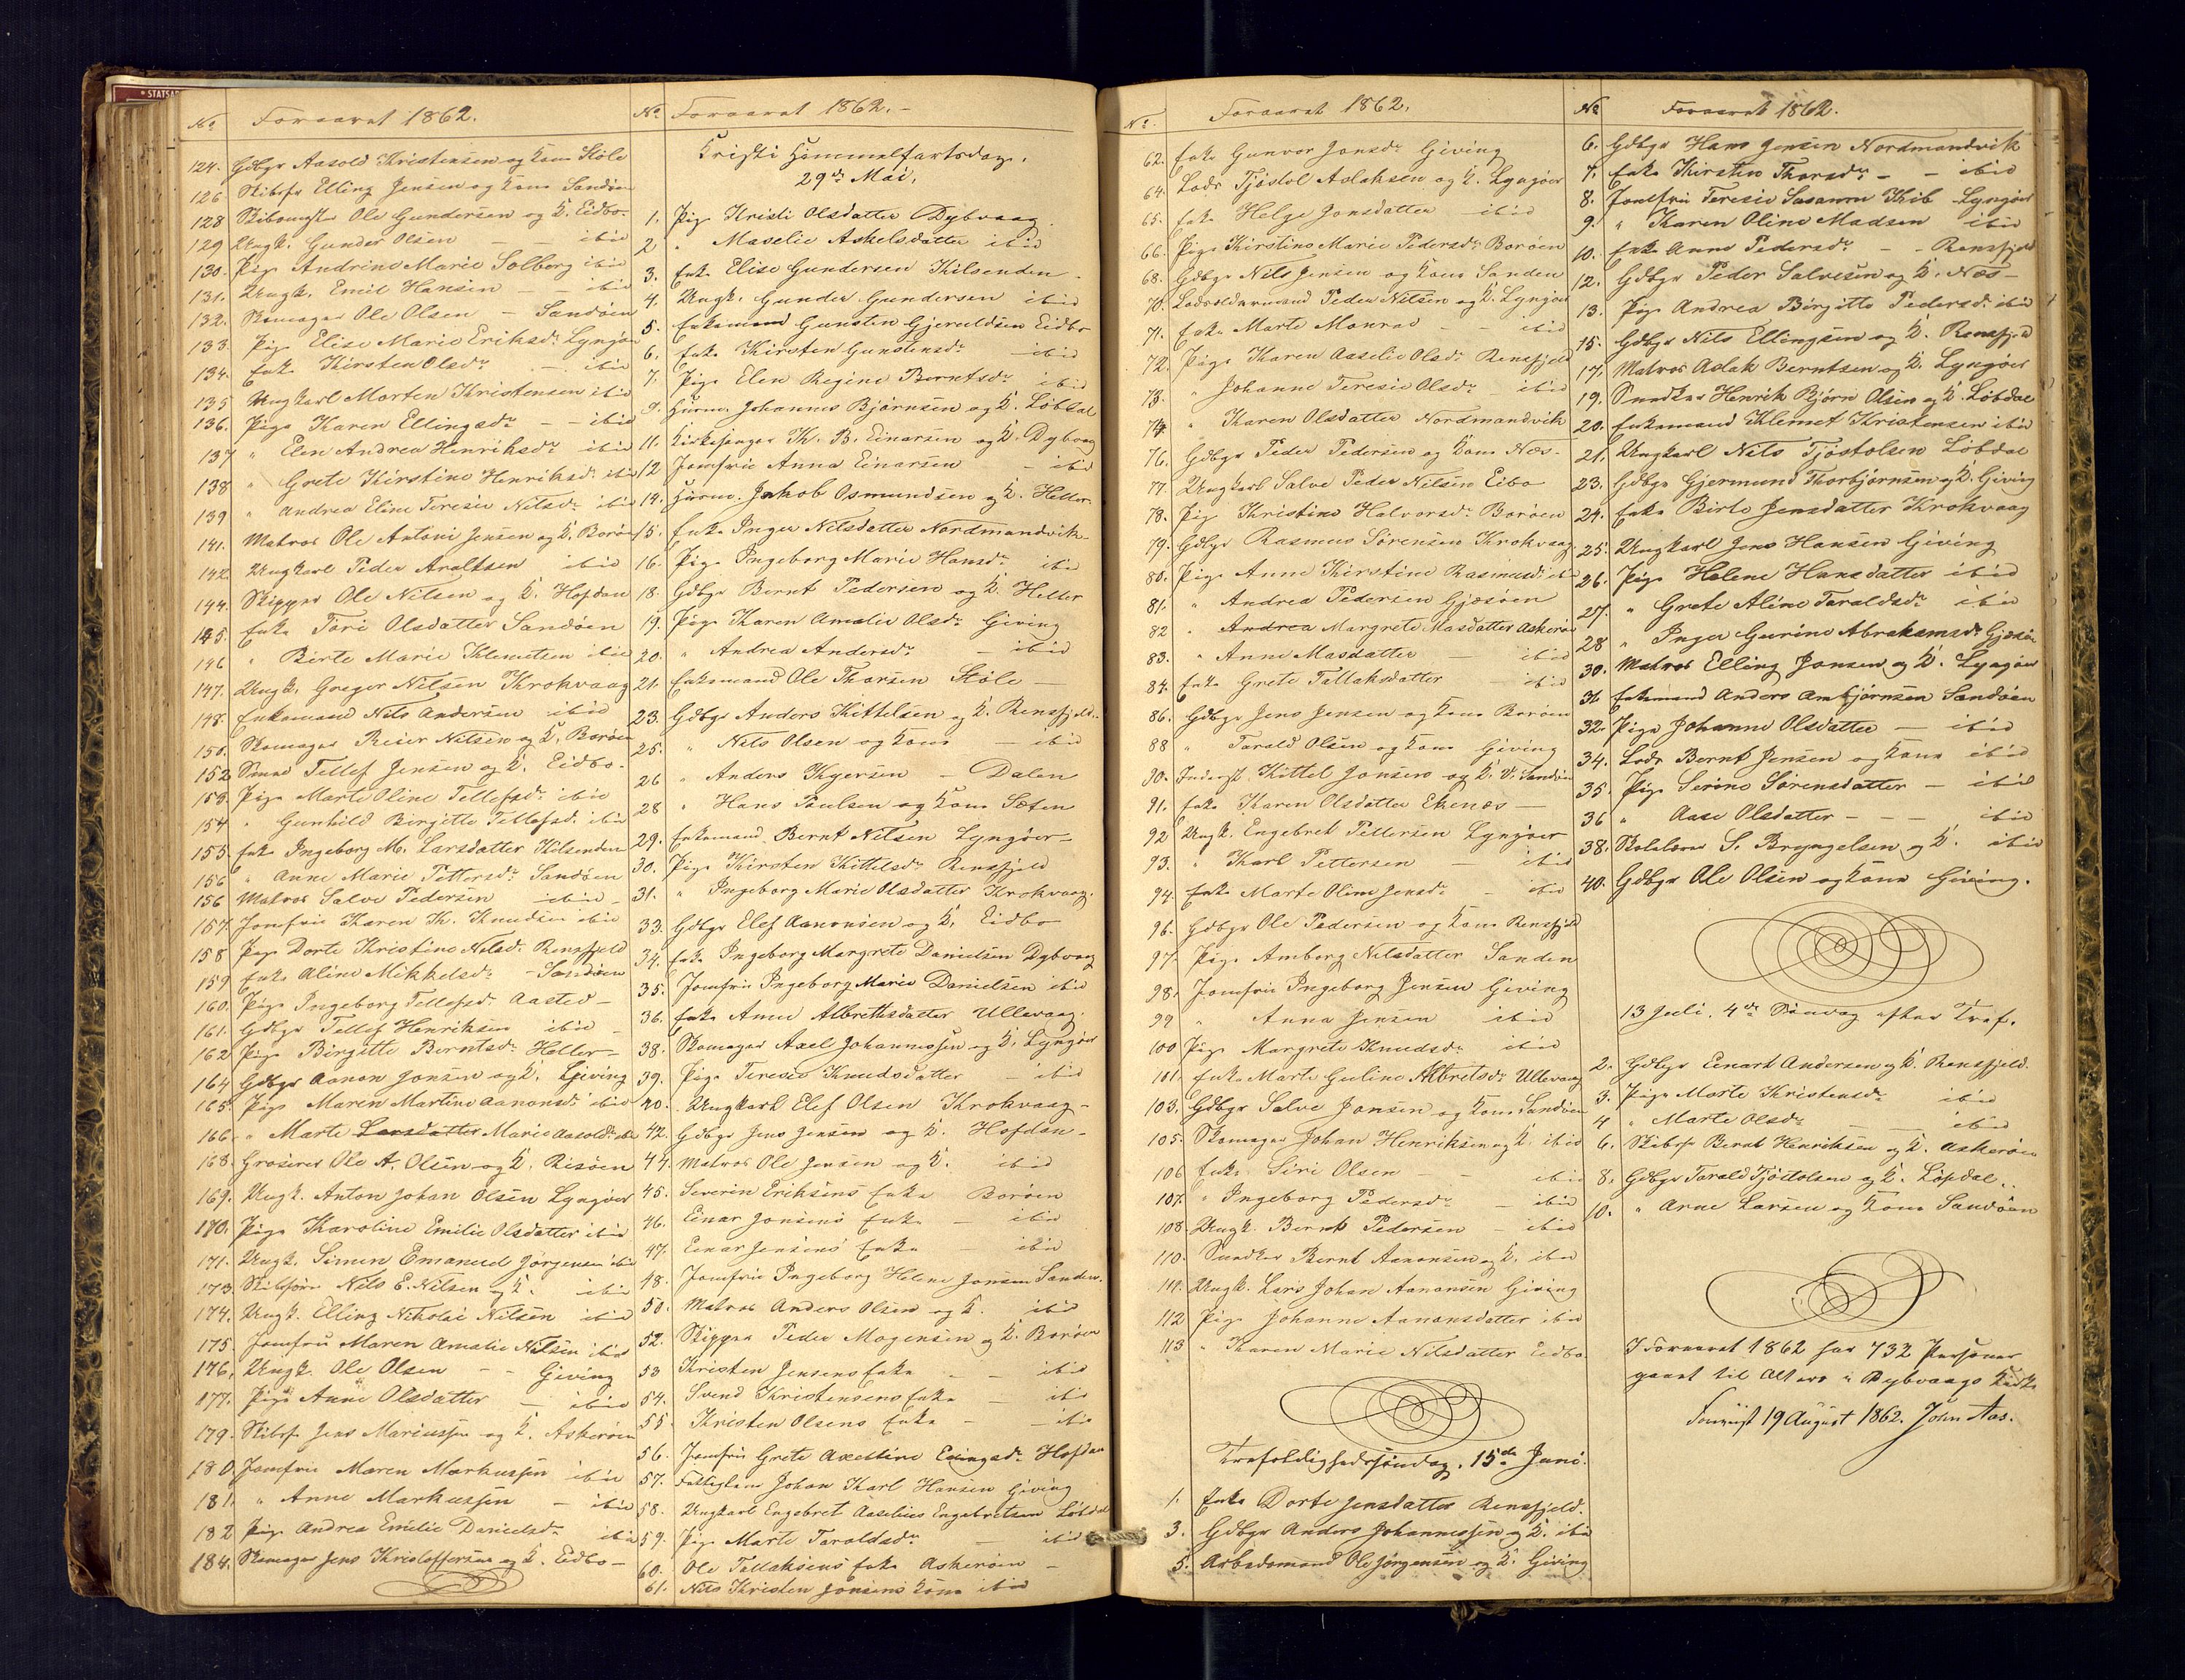 * STATSAR
No Foraaret 1862.
124. Gdbgr Aasold Kristensen og Kone Støle
126 Skibsfr Elling Jensen og Kone Sandøen
128 Skibsmstr Ole Gundersen og K. Eidbo-
129 Ungk. Gunder Olsen - - ibid
130. Pige Andrine Marie Solberg ibid
131. Ungk. Emil Hansen - - ibid
132. Skomager Ole Olsen - Sandøen
133. Pige Elise Marie Eriksdr Lyngør
134. Enke Kirsten Olsdr - ibid
135 Ungkarl Morten Kristensen ibid
136. Pige Karen Ellingsdr - - ibid
137 " Elen Andrea Henriksdr ibid
138 " Grete Kirstine Henriksdr ibid
139 " Andrea Eline Teresie Nilsdr ibid
141. Matros Ole Antoni Jensen og K. Borøen
142. Ungkarl Peder Araltsen ibid
144. Skipper Ole Nilsen og K. Hofdan
145. Enke Tori Olsdatter Sandøen
146 " Birte Marie Klemetsen ibid
147. Ungk. Greger Nilsen Krokvaag
148. Enkemand Nils Andersen ibid
150. Skomager Reier Nilsen og K. Borøen
152 Smed Tellef Jensen og K. Eidbo-
153. Pige Marte Oline Tellefsdr ibid
154 " Gunhild Birgitte Tellefsd. ibid
155. Enke Ingeborg M. Larsdatter Kilsenden
156 " Anne Marie Pettersdr Sandøen
156 Matros Salve Pedersen ibid -
157. Jomfru Karen K. Knudsen ibid
158 Pige Dorte Kristine Nilsd. Rensfjeld
159 Enke Aline Mikkelsdr - Sandøen
160. Pige Ingeborg Tellefsdr Aasted -
161. Gdbgr Tellef Henriksen ibid -
162 Pige Birgitte Berntsdr Heller-
164 Gdbgr Aanon Jensen og K. Giving
165. Pige Maren Martine Aanonsd. ibid
166. " Marte Larsdatter Marie Aasoldsdr ibid
168. Groserer Ole A. Olsen og K. Risøen
169. Ungk. Anton Johan Olsen Lyngøer
170. Pige Karoline Emilie Olsdatter ibid
171. Ungk. Simen Emanuel Jørgensen ibid
173 Skibsfører Nils E. Nilsen og K. ibid
174. Ungk. Elling Nikolai Nilsen ibid
175. Jomfru Maren Amalie Nilsen ibid
176. Ungk. Ole Olsen - - Giving
177. Pige Anne Olsdatter - ibid
179. Skibsfr Jens Mariussen og K. Askerøen
180. Jomfru Maren Markussen ibid
181. " Anne Markussen - ibid
182 Pige Andrea Emilie Danielsdr ibid
184. Skomager Jens Kristoffersen og K. Eidbo-
No Foraaret 1862.-
Kristi Himmelfartsdag.
29de Mai.
1. Pige Kristi Olsdatter Dybvaag
2 " Maselie Askelsdatter ibid
3. Enke Elise Gundersen Kilsenden.
4. Ungk. Gunder Gundersen ibid
5. Enkemand Gunsten Gjeruldsen Eidbo
6. Enke Kirsten Gunstensdr - ibid
7. Pige Elen Regine Berntsdr ibid
9. Huusm. Johannes Bjørnsen og K. Løbdal
11. Kirkesanger K. B. Einarsen og K. Dybvaag
12 Jomfrue Anna Einarsen - ibid
14. Huusm. Jakob Osmundsen og K. Heller.
15. Enke Inger Nilsdatter Nordmandvik-
16. Pige Ingeborg Marie Hansdr ibid
18. Gdbgr Bernt Pedersen og K. Heller
19. Pige Karen Amalie Olsdr Giving
20. " Andrea Andersdr - ibid
21. Enkemand Ole Thorsen Støle -
23. Gdbgr Anders Kittelsen og K. Rensfjeld..
25. " Nils Olsen og Kone - ibid
26 " Anders Kgersen - Dalen
28 " Hans Poulsen og Kone Sæten
29. Enkemand Bernt Nilsen Lyngøer-
30. Pige Kirsten Kittelsdr Rensfjeld
31. " Ingeborg Marie Olsdatter Krokvaag.
33. Gdbgr Elef Aanonsen og K. Eidbo
34. Enke Ingeborg Margrete Danielsen Dybvaag
35. Jomfru Ingeborg Marie Danielsen ibid
36. Enke Anne Albrethsdatter Ullevaag.
38. Skomager Axel Johannessen og K. Lyngøer
39. Pige Teresie Knudsdatter - ibid
40. Ungkarl Elef Olsen Krokvaag-
42. Gdbgr Jens Jensen og K. Hofdan-
44. Matros Ole Jensen og K. ibid
45. Severin Eriksens Enke Borøen
46. Einar Jonsens Enke - ibid
47. Einar Jensens Enke - ibid
48. Jomfrue Ingeborg Helene Jonsen Sanden.
50. Matros Anders Olsen og K. ibid
52. Skipper Peder Mogensen og K. Borøen
53 Kristen Jensens Enke - - ibid
54. Svend Kristensens Enke - ibid
55. Kristen Olsens Enke - - ibid
56. Jomfru Grete Axeline Ellingsdr Hofdan
57. Fattiglem Johan Karl Hansen Giving
58. Ungkarl Engebret Aaselius Engebretsen Løbdal
59. Pige Marte Taraldsdr - ibid
60. Ole Tellaksens Enke Askerøen -
61. Nils Kristen Jonsens Kone ibid
No. Foraaret 1862.
62. Enke Gunvor Jonsdr Giving
64. Lods Tjøstol Aslaksen og K. Lyngøer
65. Enke Helge Jonsdatter ibid
66. Pige Kirstine Marie Pedersdr Borøen
68. Gdbgr Nils Jensen og Kone Sanden
70. Lodsoldermand Peder Nilsen og K. Lyngøer
71. Enke Marte Monrad - - ibid
72. Pige Karen Aaselie Olsdr Rensfjeld
73. " Johanne Teresie Olsdr ibid
74. " Karen Olsdatter Nordmandvik
76. Gdbgr Peder Pedersen og Kone Næs-
77. Ungkarl Salve Peder Nilsen Eibo
78. Pig Kristine Halvorsdr Borøen
79. Gdbgr Rasmus Sørensen Krokvaag
80. Pige Anne Kirstine Rasmusdr ibid
81. " Andrea Pedersen Gjæsøen
82 " Andrea Margrete Masdatter Askerøen
83. " Anne Masdatter - ibid
84. Enke Grete Tallaksdatter - ibid
86. Gdbgr Jens Jensen og Kone Borøen
88 " Tarald Olsen og Kone Giving
90. Inderst. Kittel Jonsen og K. V. Sandøen
91. Enke Karen Olsdatter Ekenæs -
92 Ungk. Engebret Pettersen Lyngøer
93. " Karl Pettersen - ibid
94. Enke Marte Oline Jensdr - ibid
96. Gdbgr Ole Pedersen og Kone Rensfjeld
97. Pige Amborg Nilsdatter Sanden
98. Jomfrue Ingeborg Jensen Giving
99 " Anna Jensen ibid
100 Pige Margrete Knudsdr ibid
101. Enke Marte Guline Albretsdr Ullevaag
103. Gdbgr Salve Jansen og Kone Sandøen
105. Skomager Johan Henriksen og K. ibid
106 Enke Siri Olsen - - ibid
107. " Ingeborg Pedersdr - ibid
108. Ungk. Bernt Pedersen - ibid
110. Snedker Bernt Aanonsen og K. ibid
111. Ungk. Lars Johan Aanonsen Giving
112 Pige Johanne Aanonsdatter ibid
113 " Karen Marie Nilsdatter Eidbo.
Trefoldighedssøndag, 15de Juni.
1. Enke Dorte Jensdatter Rensfjeld.
3. Gdbgr Anders Johannessen og K. ibid
5. Arbeidsmand Ole Jørgensen og K. Giving
No Foraaret 1862.
6. Gdbgr Hans Jensen Nordmandvik
7. Enke Kirsten Thorsdr - - ibid
8. Jomfrue Teresie Susanne Kib Lyngøer
9. " Karen Oline Madsen ibid
10. Enke Anne Pedersdr - - Rensfjeld
12. Gdbgr Peder Salvesen og K. Næs-
13. Pige Andrea Birgitte Pedersd. ibid
15. Gdbgr Nils Ellingsen og K. Rensfjeld
17. Matros Aslak Berntsen og K. Lyngøer
19. Snedker Henrik Bjørn Olsen og K. Løbdal
20. Enkemand Klemet Kristensen ibid
21. Ungkarl Nils Tjøstolsen Løbdal
23. Gdbgr Gjermund Thorbjørnsen og K. Giving
24. Enke Birte Jensdatter Krokvaag
25. Ungkarl Jens Hansen Giving
26. Pige Helene Hansdatter ibid
27. " Grete Aline Taraldsdr ibid
28 " Inger Gurine Abrahamsdr Gjæsøen
30. Matros Elling Jansen og K. Lyngøer
31 Enkemand Anders Ambjørnsen Sandøen
32. Pige Johanne Olsdatter - ibid
34. Lods Bernt Jensen og Kone ibid
35. Pige Serine Sørensdatter - ibid
36 " Aase Olsdatter - - - ibid
38. Skolelærer S. Bryngelsen og K. ibid
40. Gdbgr Ole Olsen og Kone Giving.
13 Juli. 4de Søndag efter Tref.
2. Gdbgr Einart Andersen og K. Rensfjeld.
3. Pige Marte Kristensdr ibid
4 " Marte Olsdr - - ibid
6. Skibsfr Bernt Henriksen og K. Askerøen
8. Gdbgr Tarald Tjøstolsen og K. Løbdal..
10. " Arne Larsen og Kone Sandøen
I Foraaret 1862 har 732 Personer
gaaet til Alters i Dybvaags Kirke
19 August 1862. John Aas.